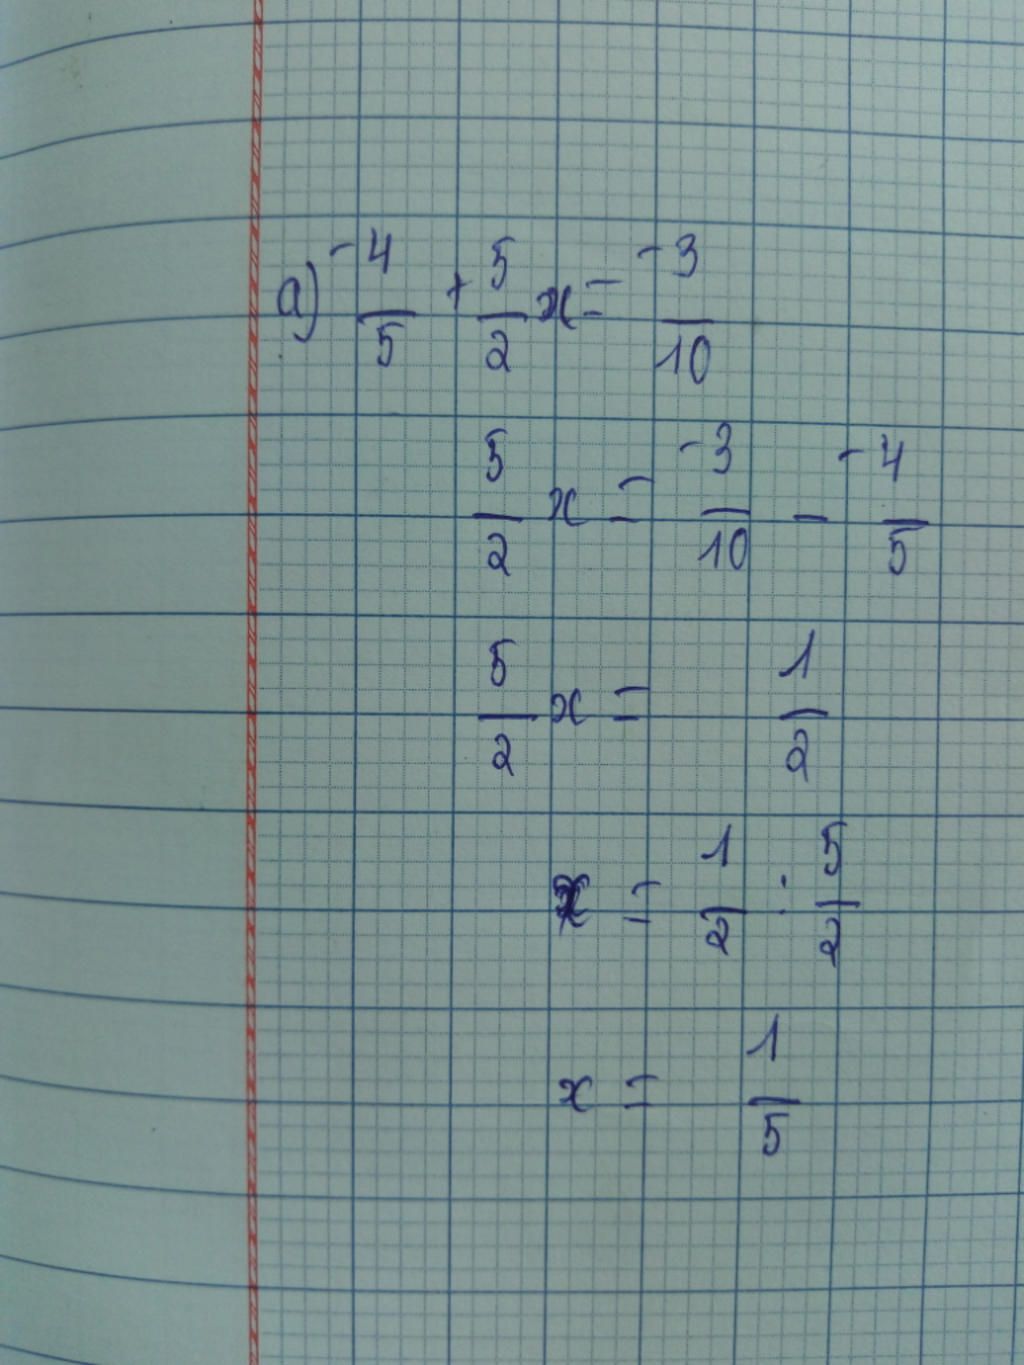 a) -4/5 + 5/2 x = -3/10
5/2 x = -3/10 - -4/5
5/2 x = 1/2
x = 1/2 : 5/2
x = 1/5